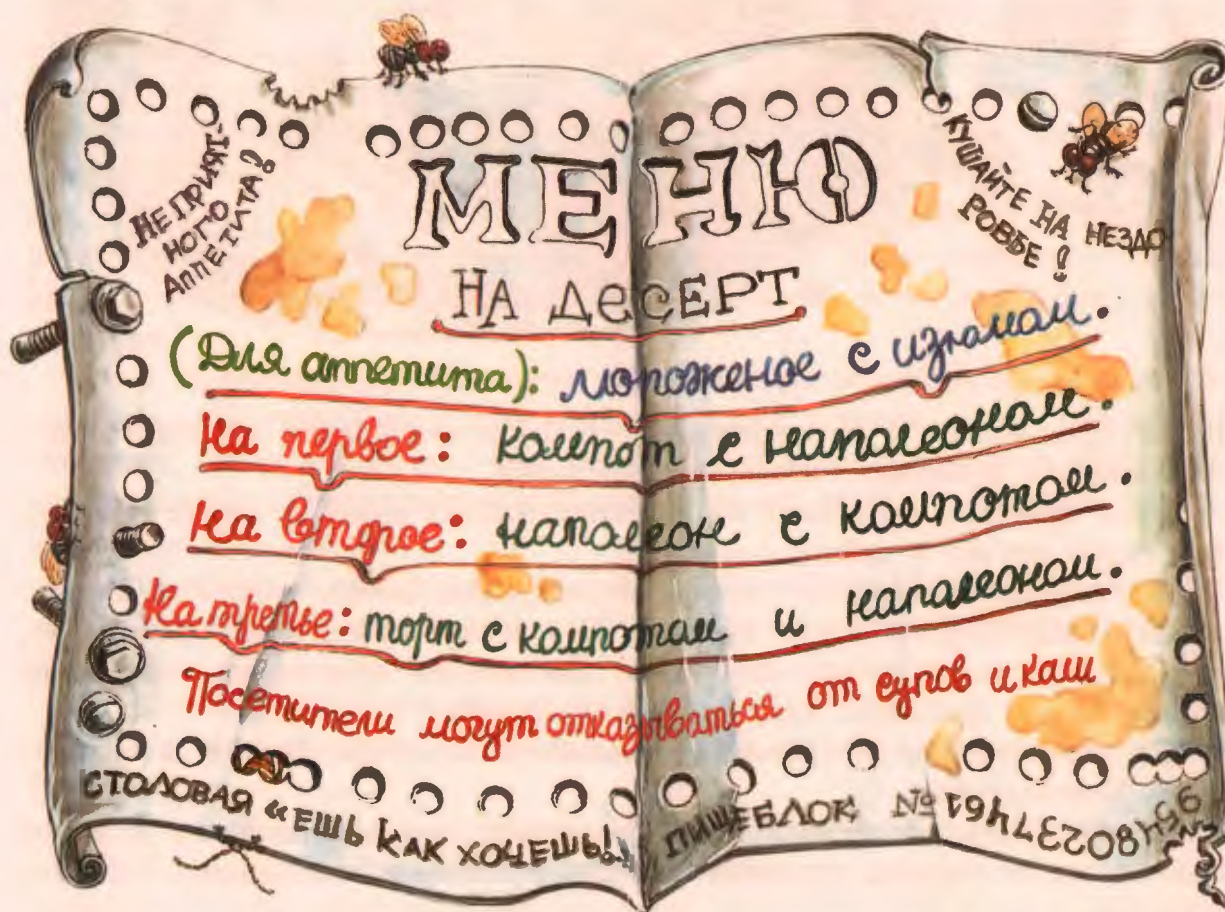 НЕ ПРИЯТ-
НОГО
АППЕТИТА!
КУШАЙТЕ НА НЕЗДО
РОВЬЕ!
МЕНЮ
НА ДЕСЕРТ
(Для аппетита): мороженое с изюмом.
На первое: компот с наполеоном.
На второе: наполеон с компотом.
На третье: торт с компотом и наполеоном.
Посетители могут отказываться от супов и каш
СТОЛОВАЯ «ЕШЬ КАК ХОЧЕШЬ!»
ПИЩЕБЛОК №